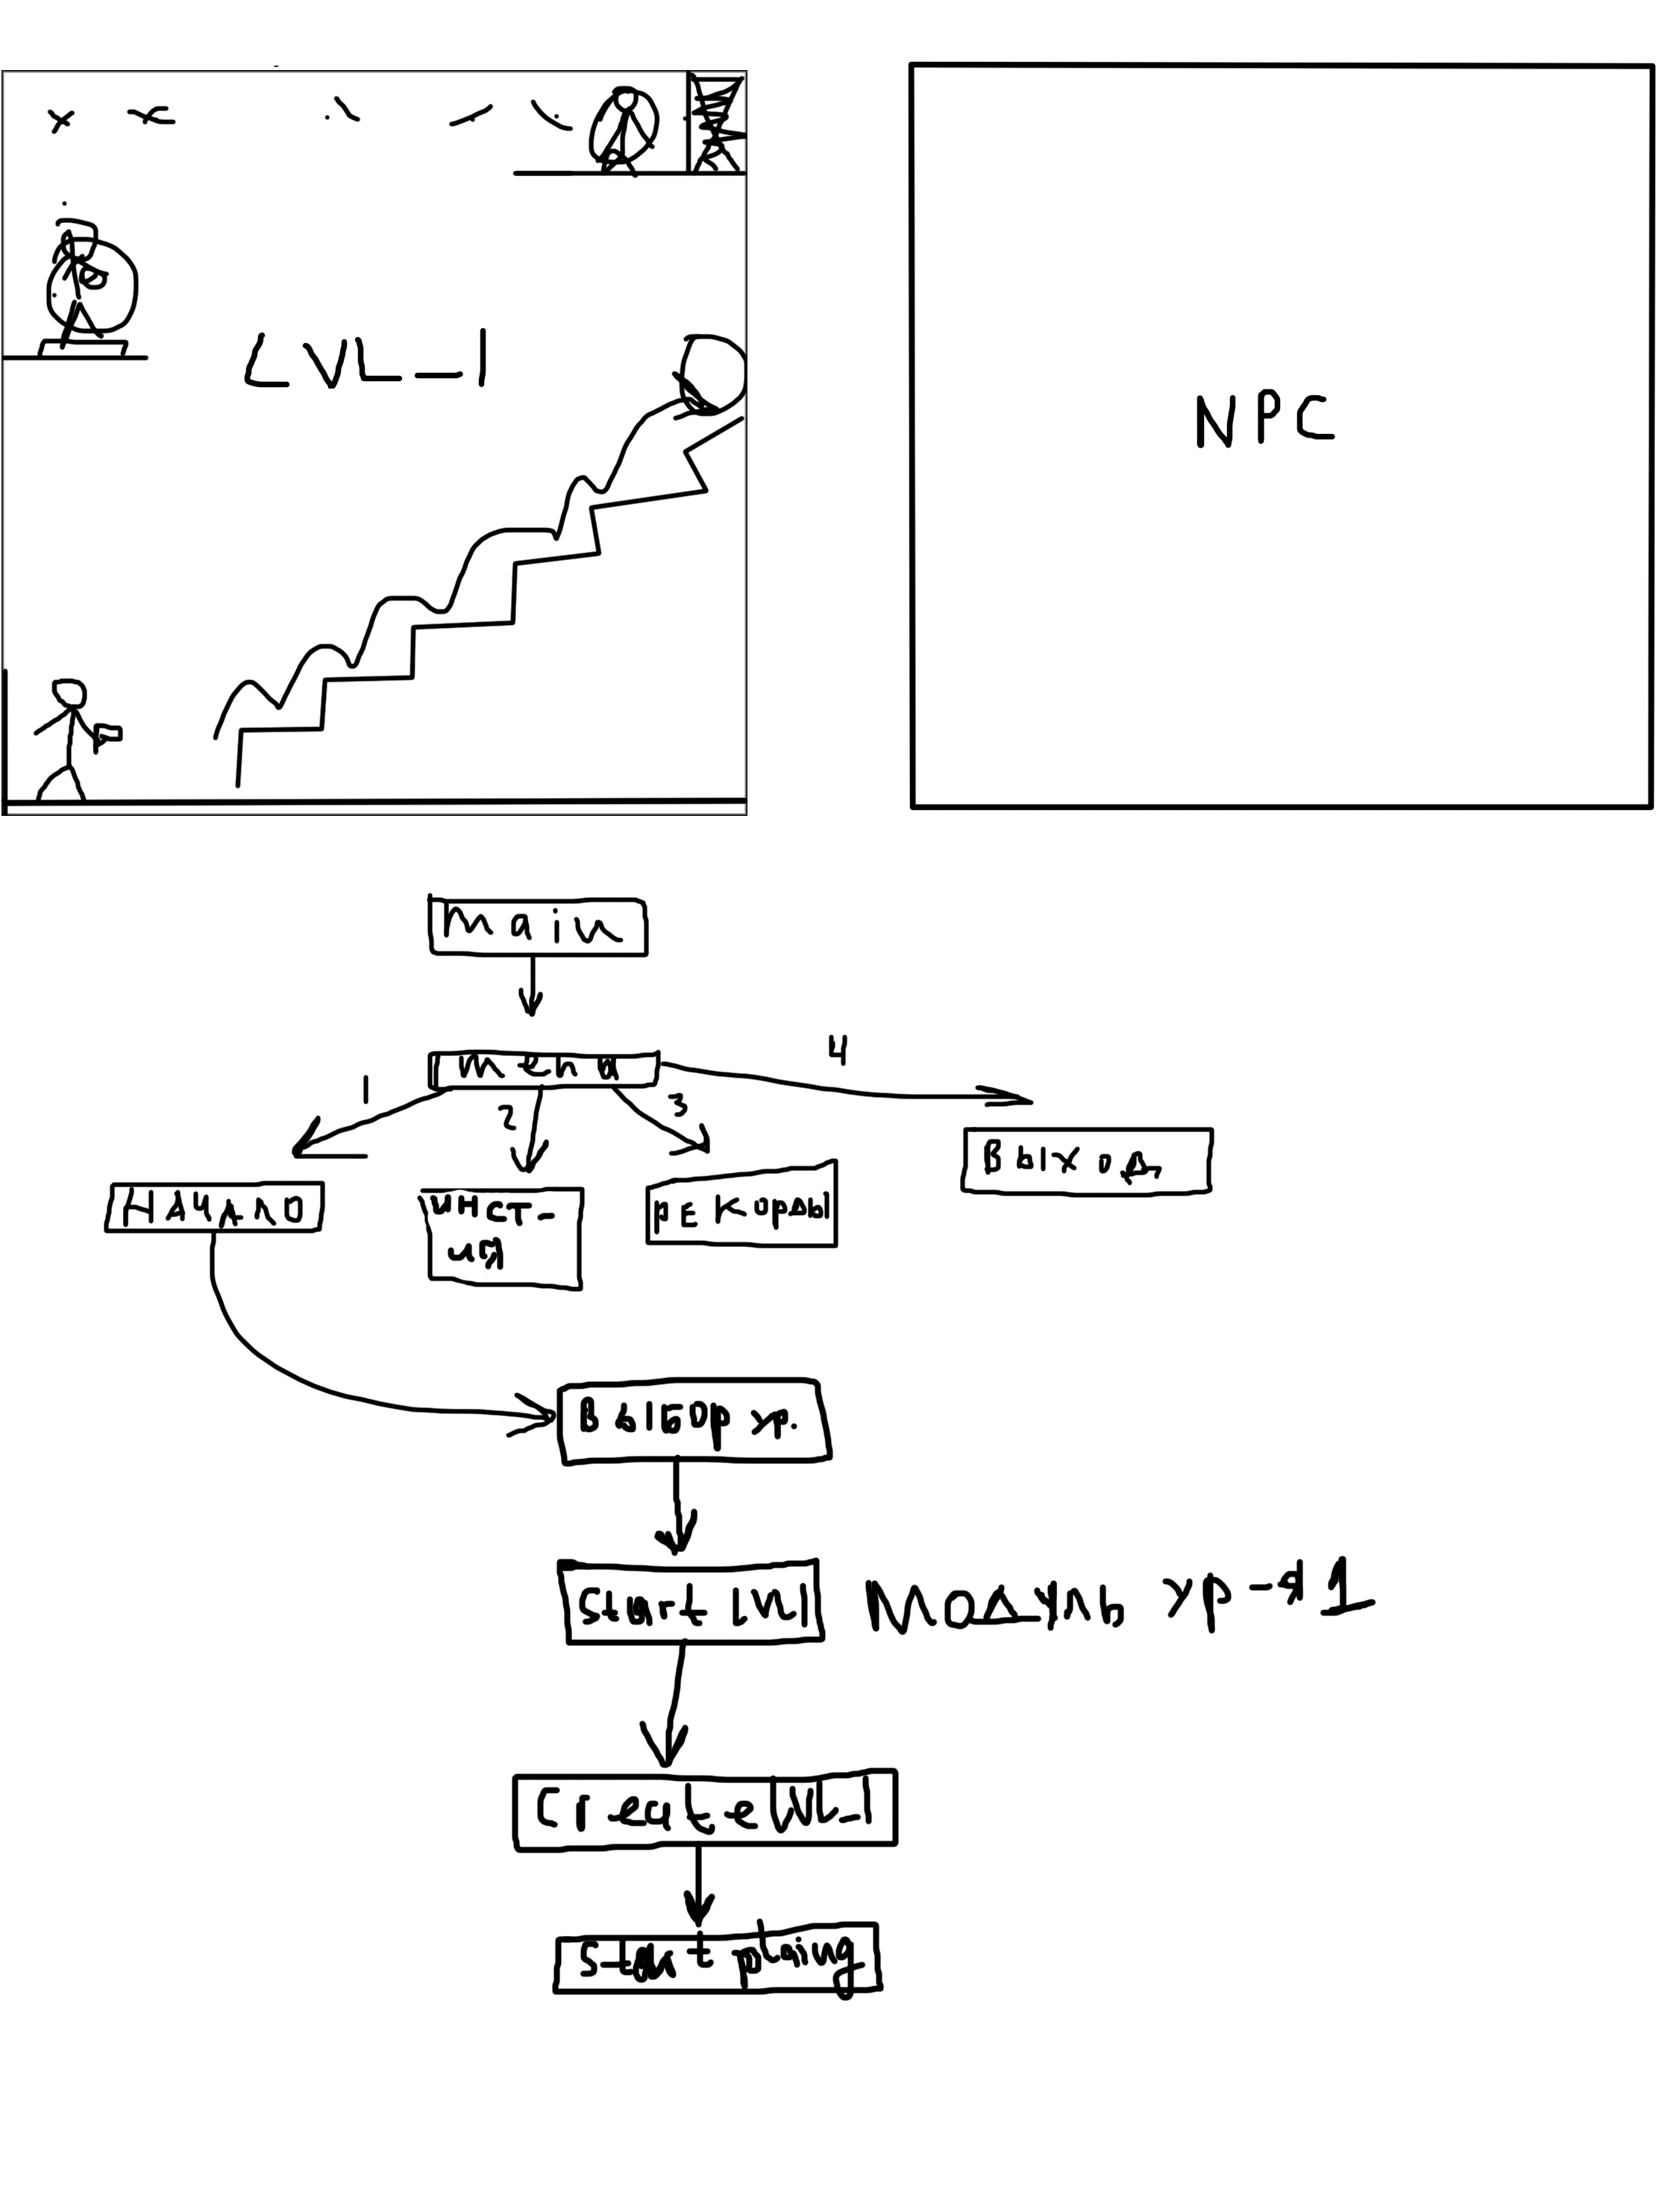 LVL_1
NPC
Main
Menu
4
1
2
3
Выход
НАЧАЛО
ИНСТ-
ЦИЯ
РЕКОРДЫ
Выбор ур.
Start lvl
Модуль ур-я 1
CreateLVL_1
start pluing